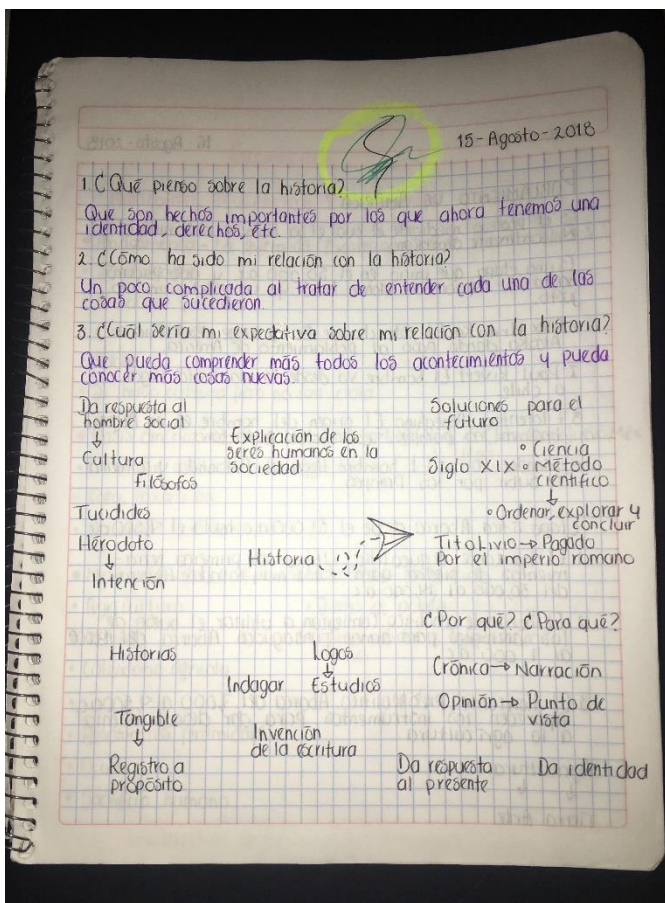 15-Agosto-2018
1. ¿Qué pienso sobre la historia?
Que son hechos importantes por los que ahora tenemos una
identidad, derechos, etc.
2. ¿Cómo ha sido mi relación con la historia?
Un poco complicada al tratar de entender cada una de las
cosas que sucedieron.
3. ¿Cuál sería mi expectativa sobre mi relación con la historia?
Que pueda comprender más todos los acontecimientos y pueda
conocer más cosas nuevas.
Da respuesta al
hombre social
↓
Cultura
Filósofos
Explicación de los
seres humanos en la
sociedad
Soluciones para el
futuro
Siglo XIX
° Ciencia
° Método
científico
↓
° Ordenar, explorar y
concluir
Tucídides
Heródoto
↓
Intención
Historia
Tito Livio → Pagado
Por el imperio romano
¿Por qué? ¿Para qué?
Historias
Logos
↓
Indagar Estudios
Crónica → Narración
Opinión → Punto de
vista
Tangible
↓
Registro a
propósito
Invención
de la escritura
Da respuesta
al presente
Da identidad